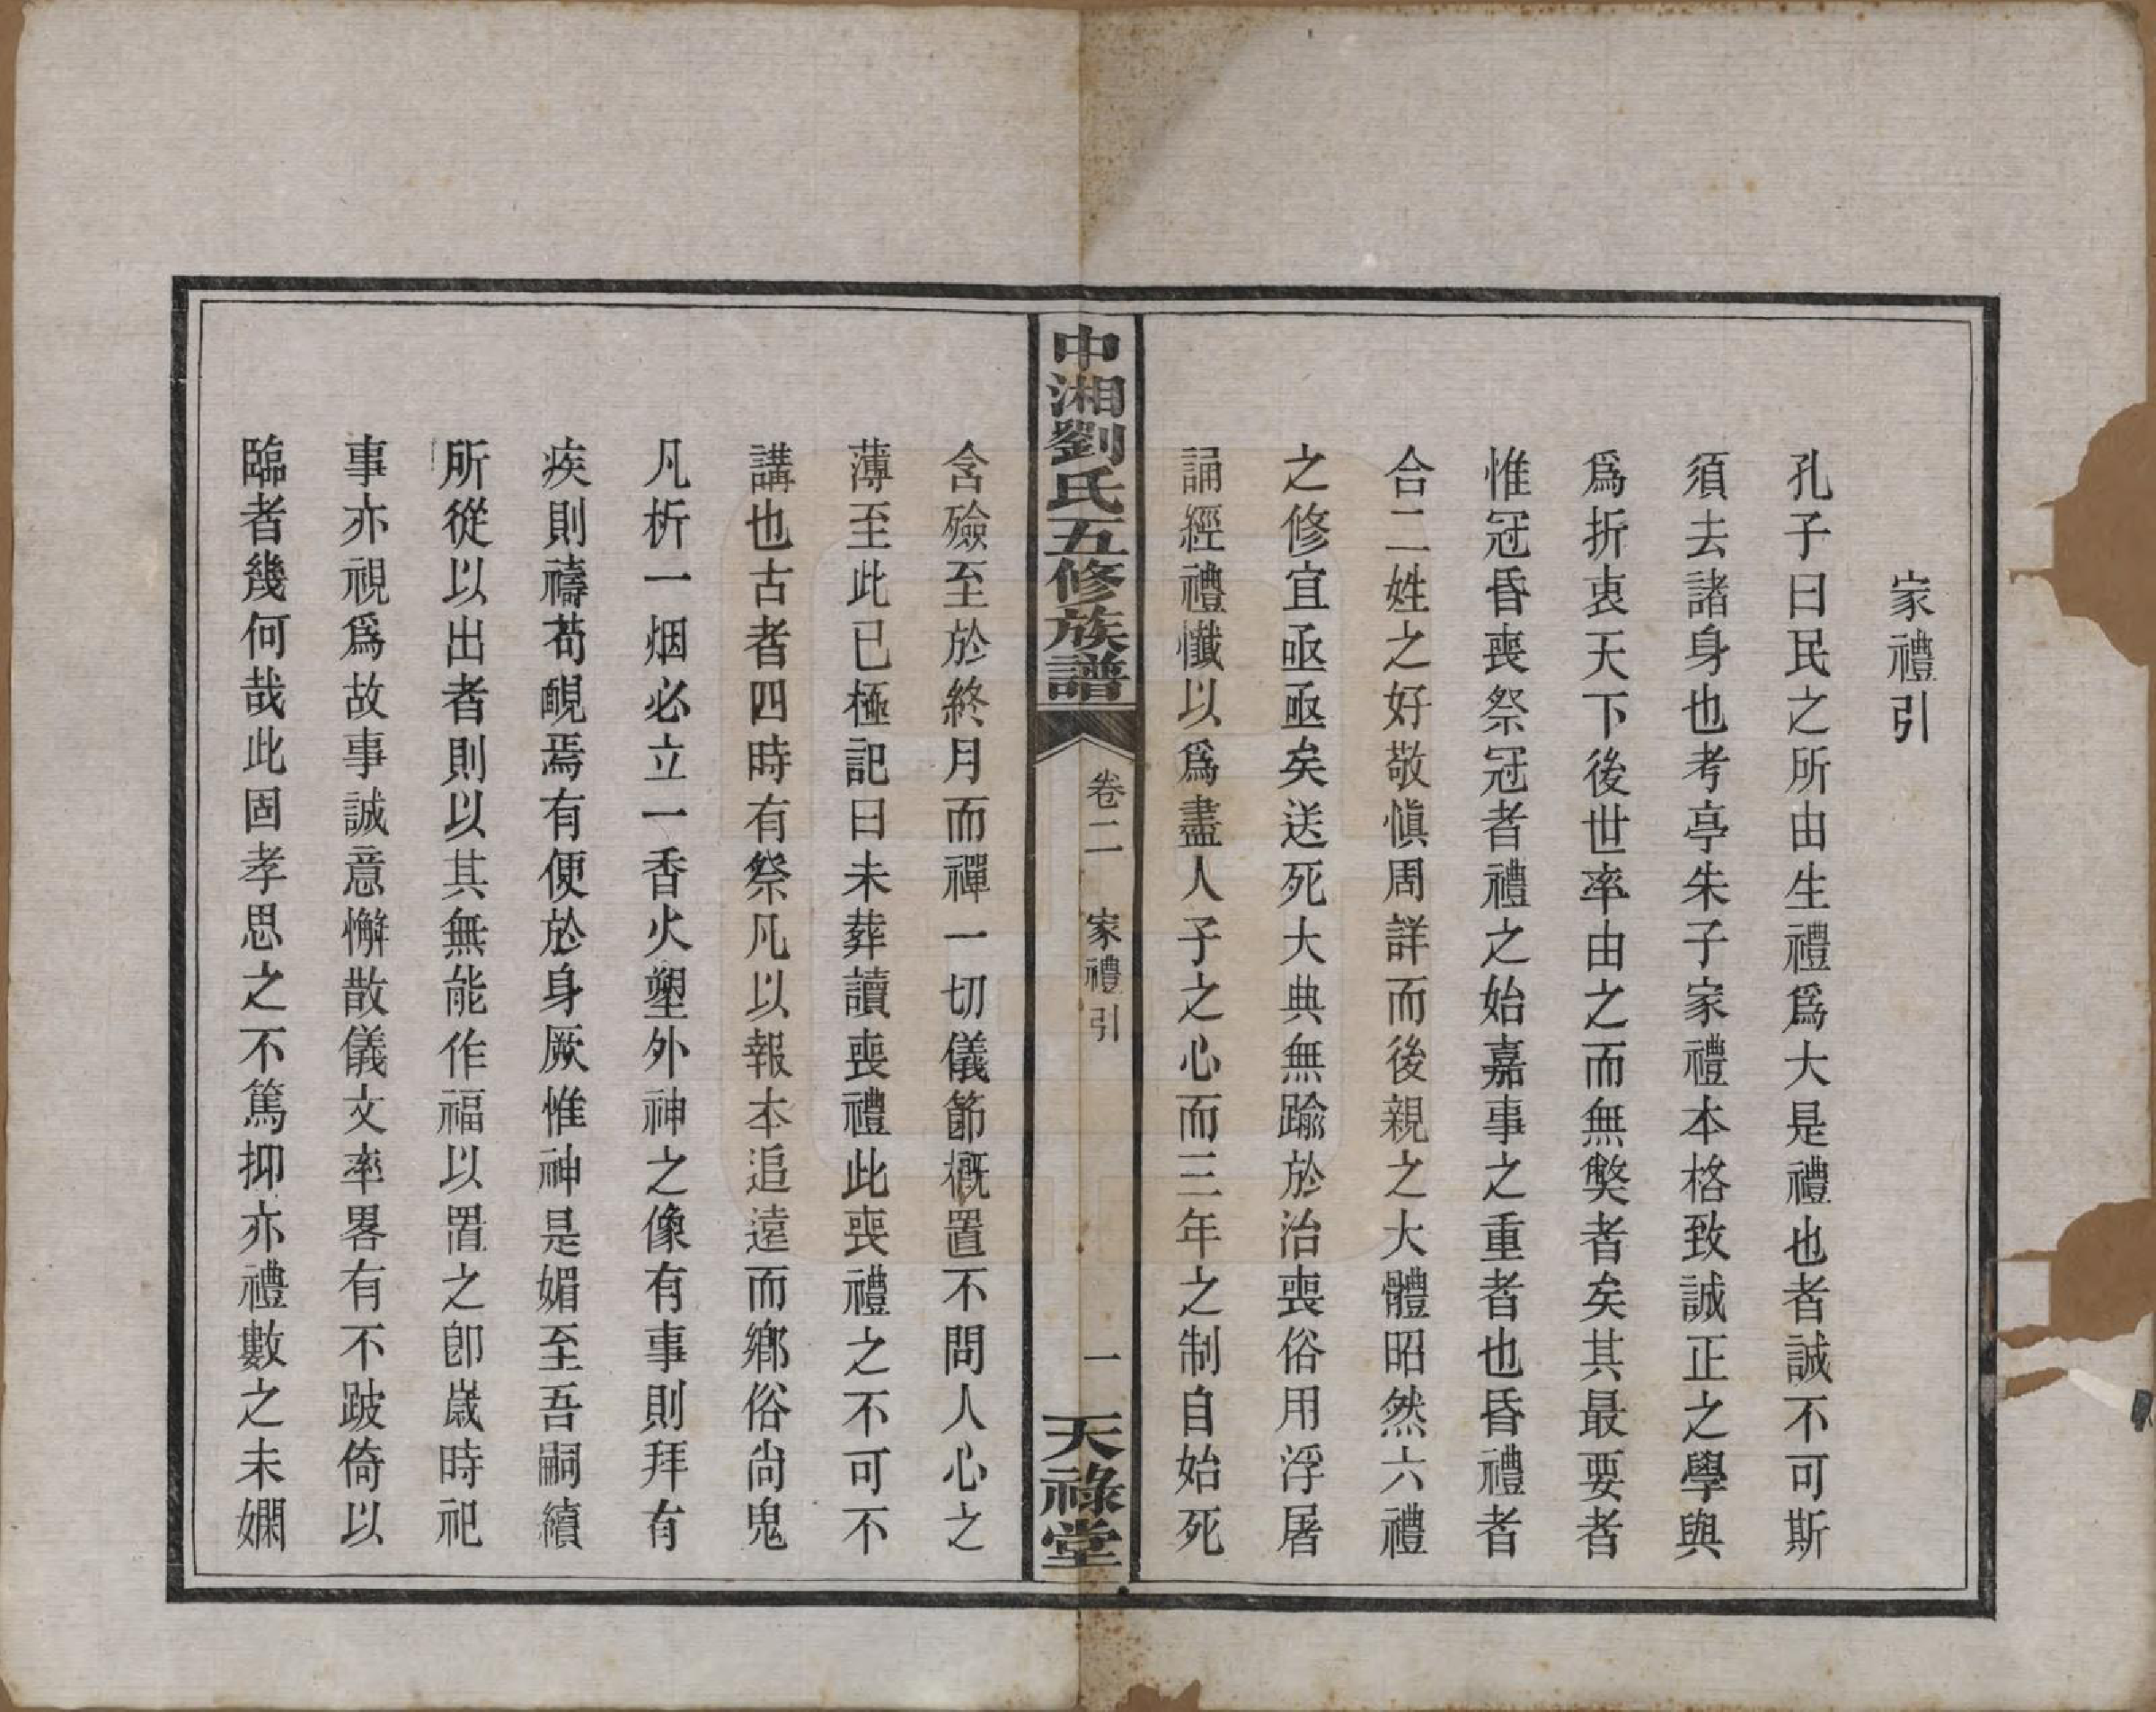 家禮引
孔子曰民之所由生禮爲大是禮也者誠不可斯
須去諸身也考亭朱子家禮本格致誠正之學與
爲折衷天下後世率由之而無獘者矣其最要者
惟冠昏喪祭冠者禮之始嘉事之重者也昏禮者
合二姓之好敬愼周詳而後親之大體昭然六禮
之修宜亟亟矣送死大典無踰於治喪俗用浮屠
誦經禮懺以爲盡人子之心而三年之制自始死
中湘劉氏五修族譜
卷二
家禮引
一
天祿堂
含殮至於終月而禫一切儀節概置不問人心之
薄至此已極記曰未葬讀喪禮此喪禮之不可不
講也古者四時有祭凡以報本追遠而鄉俗尚鬼
凡析一烟必立一香火塑外神之像有事則拜有
疾則禱苟覬焉有便於身厥惟神是媚至吾嗣續
所從以出者則以其無能作福以置之卽嵗時祀
事亦視爲故事誠意懈散儀文率畧有不跛倚以
臨者幾何哉此固孝思之不篤抑亦禮數之未嫻